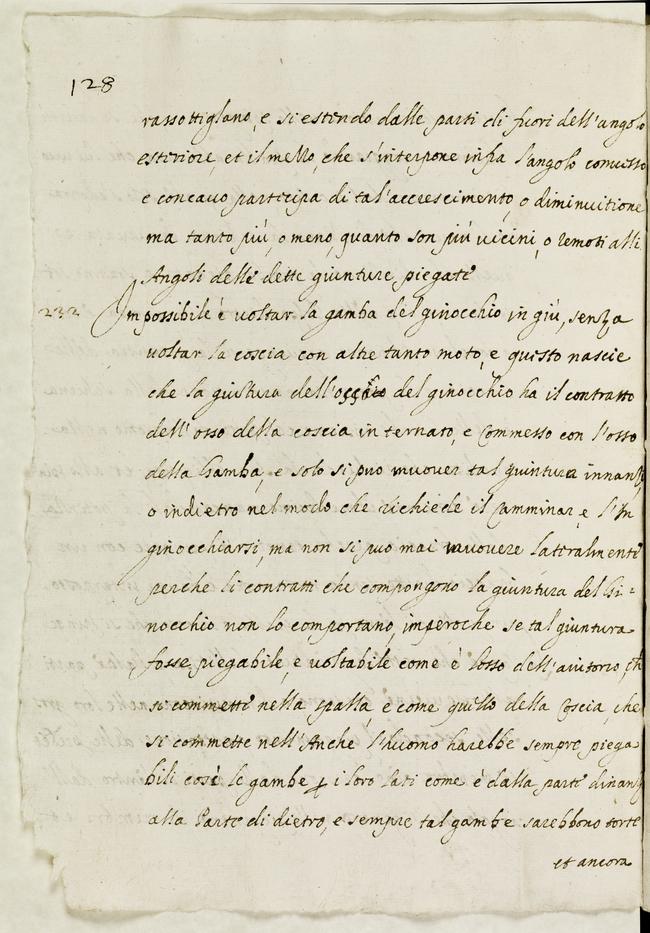 128
rassottigliano, e si estendo dalle parti di fuori dell'angolo
esteriore, et il mezzo, che s'interpone infra l'angolo convesso
e concavo participa di tal'accrescimento, o diminuitione
ma tanto più, o meno, quanto son più vicini, o remoti alli
Angoli delle dette giunture piegate
232 Impossibile è voltar la gamba del ginocchio in giù, senza
voltar la coscia con altre tanto moto, e questo nascie
che la giuntura dell' del ginocchio ha il contratto
dell'osso della coscia internato, e commesso con l'osso
della Gamba, e solo si può muover tal giuntura innanzi
o indietro nel modo che richiede il Camminar, e l'In
ginocchiarsi, ma non si può mai muovere lateralmente
perche li contratti che compongono la giuntura del Gi=
nocchio non lo comportano, imperoche se tal giuntura
fosse piegabile, e voltabile come è l'osso dell'aiutorio, ch
si commette nella spalla, e come quello della Coscia, che
si commette nell'Anche l'huomo harebbe sempre piega
bili così le gambe p i loro lati come è dalla parte dinanzi
alla Parte di dietro, e sempre tal gambe sarebbono torte
et ancora